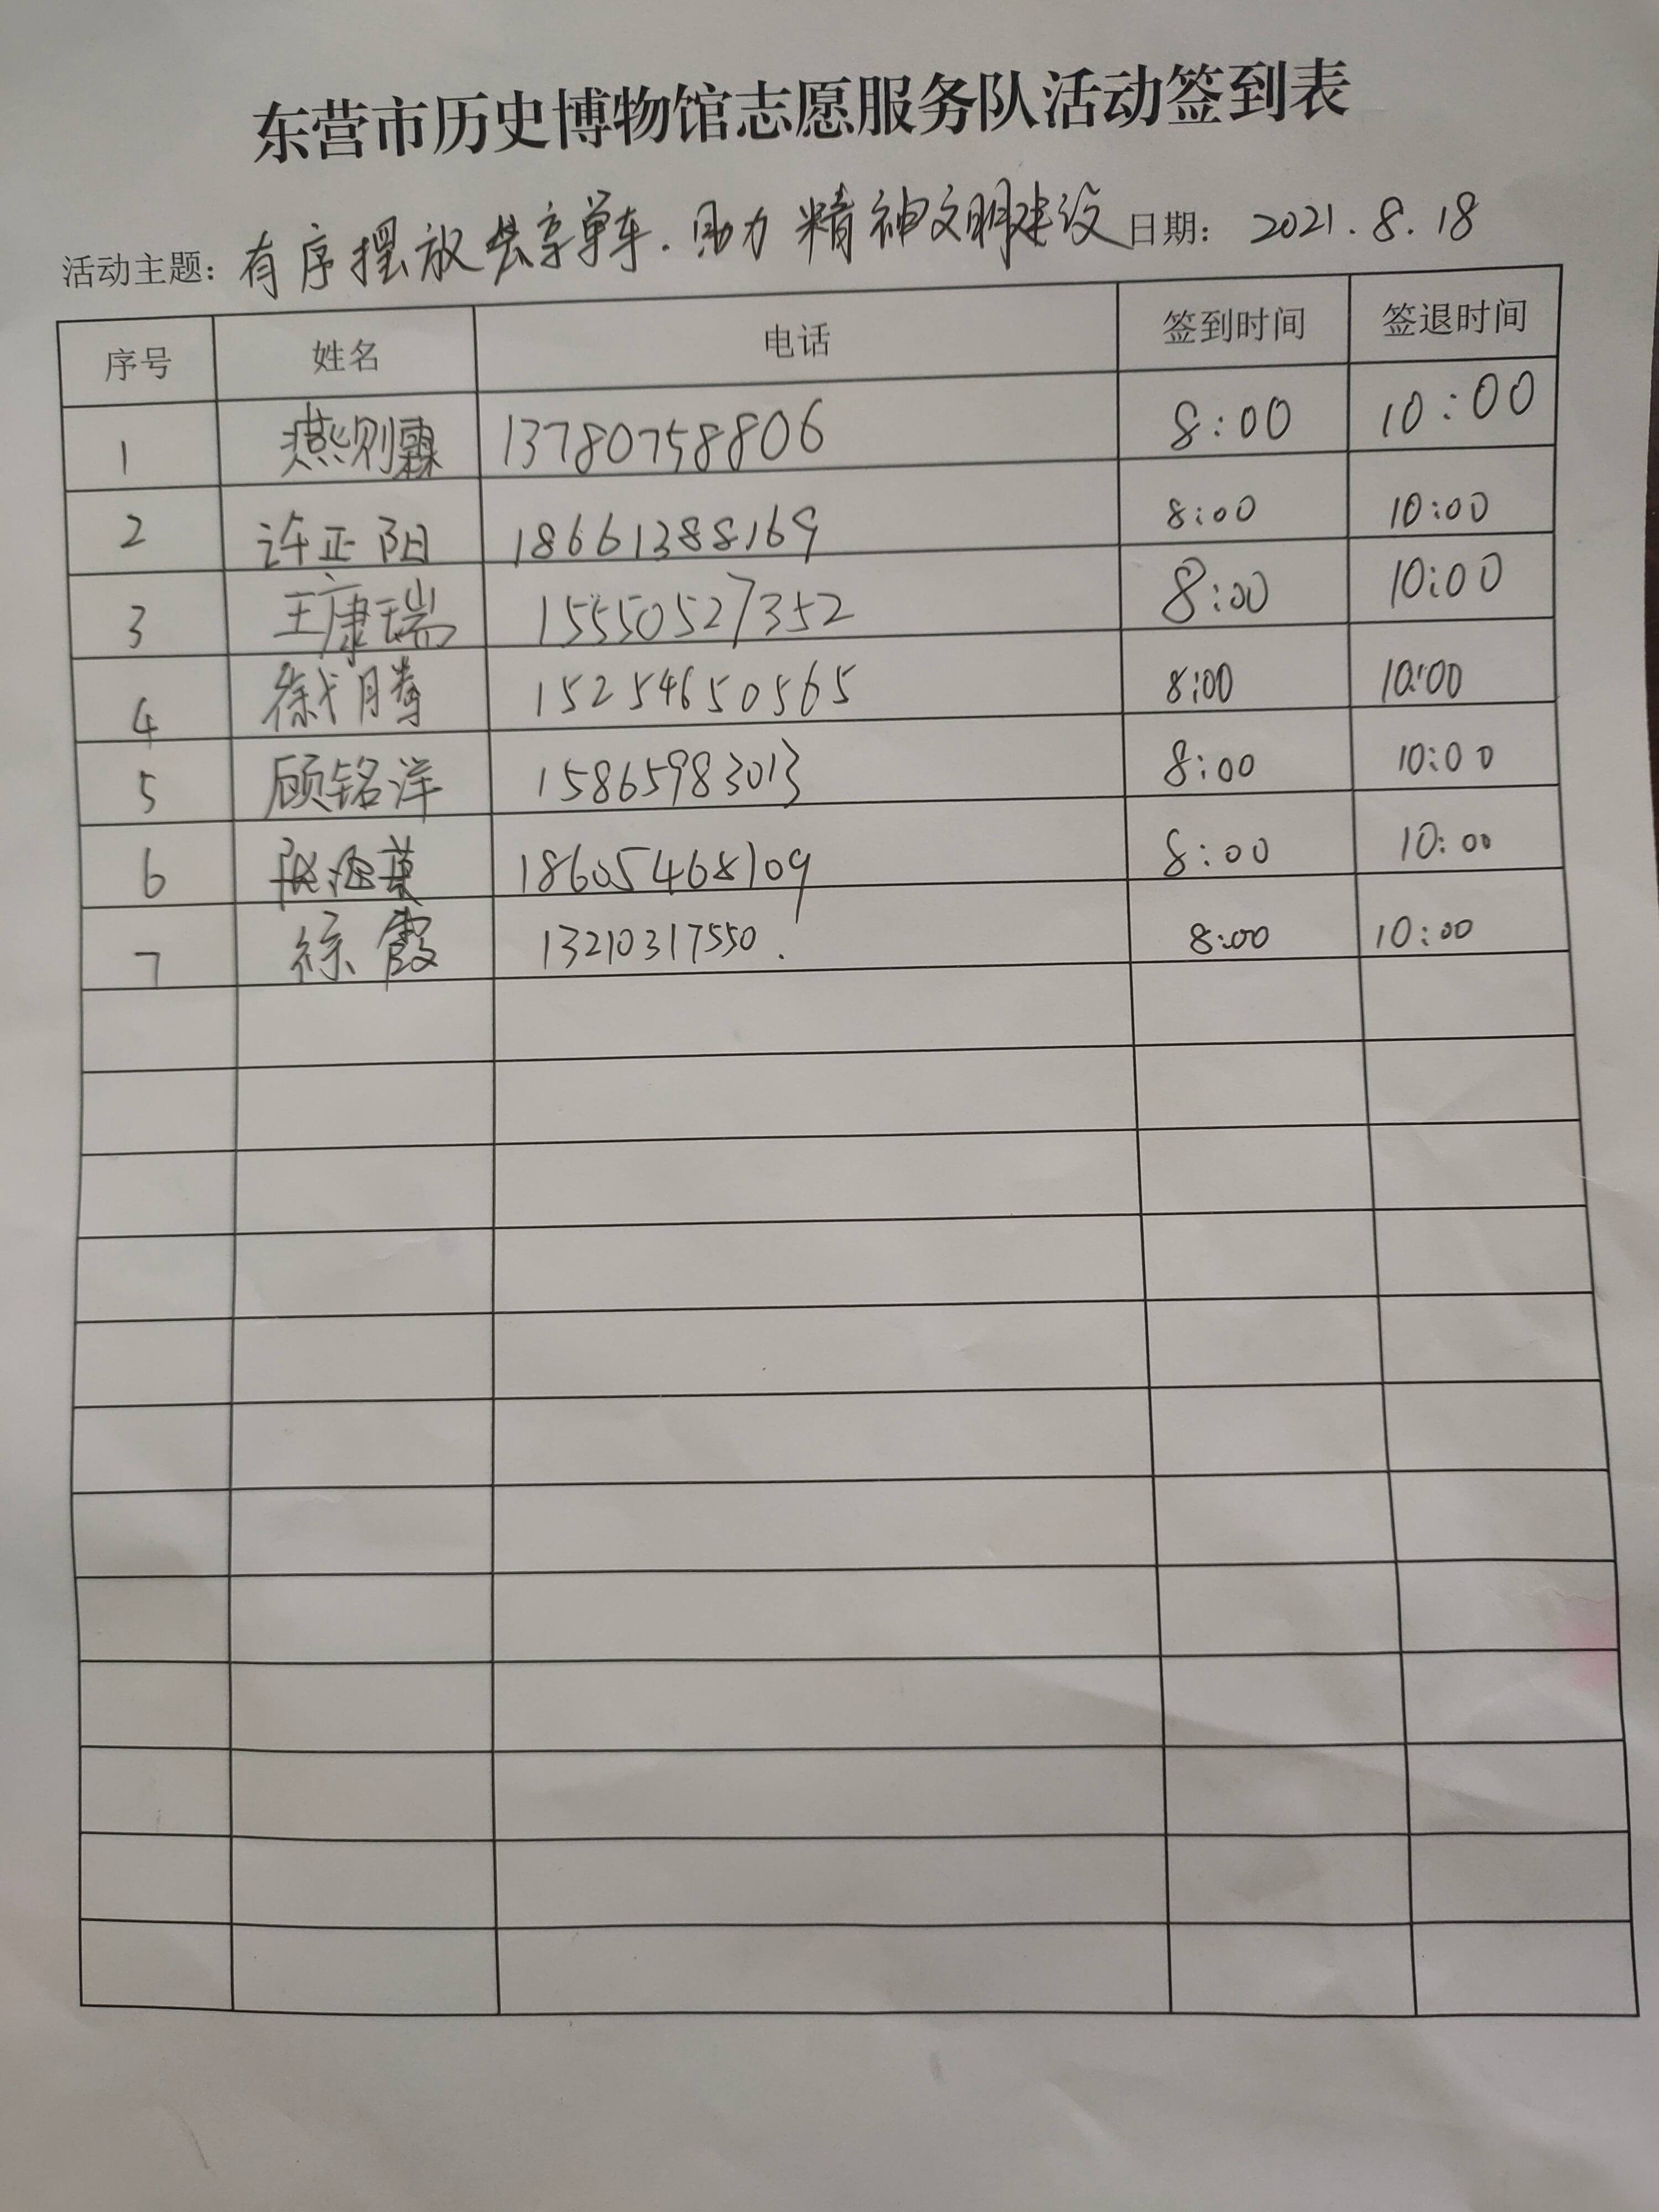 东营市历史博物馆志愿服务队活动签到表
活动主题：有序摆放共享单车.助力精神文明建设 日期： 2021.8.18
序号 姓名 电话 签到时间 签退时间
1 燕则霖 13780758806 8:00 10:00
2 许正阳 18661388169 8:00 10:00
3 王康瑞 15550527352 8:00 10:00
4 徐腾 15254650565 8:00 10:00
5 顾铭洋 15865983013 8:00 10:00
6 18605468109 8:00 10:00
7 徐霞 13210317550. 8:00 10:00